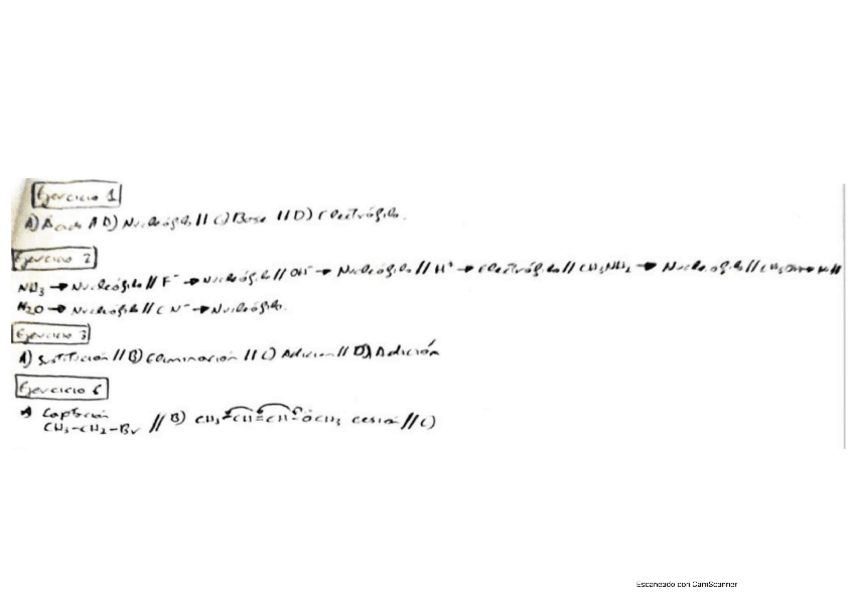 Ejercicio 1
A) Ácido // B) Nucleófilo // C) Base // D) Electrófilo.
Ejercicio 2
NH₃ → Nucleófilo // F⁻ → Nucleófilo // OH⁻ → Nucleófilo // H⁺ → Electrófilo // CH₃NH₂ → Nucleófilo // CH₃OH → N //
H₂O → Nucleófilo // CN⁻ → Nucleófilo.
Ejercicio 3
A) Sustitución // B) Eliminación // C) Adición // D) Adición
Ejercicio 6
A) Captación
CH₃-CH₂-Br // B) CH₂=CH=CH-ÖCH₃ cesión // C)
Escaneado con CamScanner